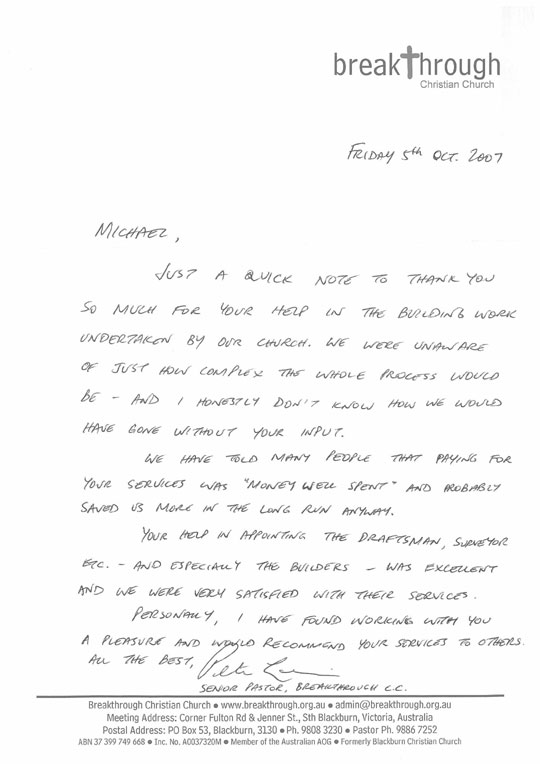 breakthrough
Christian Church
FRIDAY 5th OCT. 2007
MICHAEL,
JUST A QUICK NOTE TO THANK YOU
SO MUCH FOR YOUR HELP IN THE BUILDING WORK
UNDERTAKEN BY OUR CHURCH. WE WERE UNAWARE
OF JUST HOW COMPLEX THE WHOLE PROCESS WOULD
BE - AND I HONESTLY DON'T KNOW HOW WE WOULD
HAVE GONE WITHOUT YOUR INPUT.
WE HAVE TOLD MANY PEOPLE THAT PAYING FOR
YOUR SERVICES WAS "MONEY WELL SPENT" AND PROBABLY
SAVED US MORE IN THE LONG RUN ANYWAY.
YOUR HELP IN APPOINTING THE DRAFTSMAN, SURVEYOR
ETC. - AND ESPECIALLY THE BUILDERS - WAS EXCELLENT
AND WE WERE VERY SATISFIED WITH THEIR SERVICES.
PERSONALLY, I HAVE FOUND WORKING WITH YOU
A PLEASURE AND WOULD RECOMMEND YOUR SERVICES TO OTHERS.
ALL THE BEST,
SENIOR PASTOR, BREAKTHROUGH C.C.
Breakthrough Christian Church ● www.breakthrough.org.au ● admin@breakthrough.org.au
Meeting Address: Corner Fulton Rd & Jenner St., Sth Blackburn, Victoria, Australia
Postal Address: PO Box 53, Blackburn, 3130 ● Ph. 9808 3230 ● Pastor Ph. 9886 7252
ABN 37 399 749 668 ● Inc. No. A0037320M ● Member of the Australian AOG ● Formerly Blackburn Christian Church